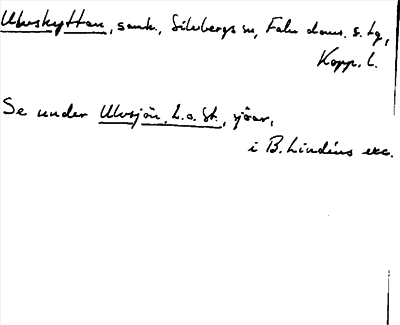 Ulvskyttan, sank., Silvbergs sn, Falu doms. s. lg,
Kopp. l.
Se under Ulvsjön, L. o. St., sjöar,
i B. Lindéns exc.